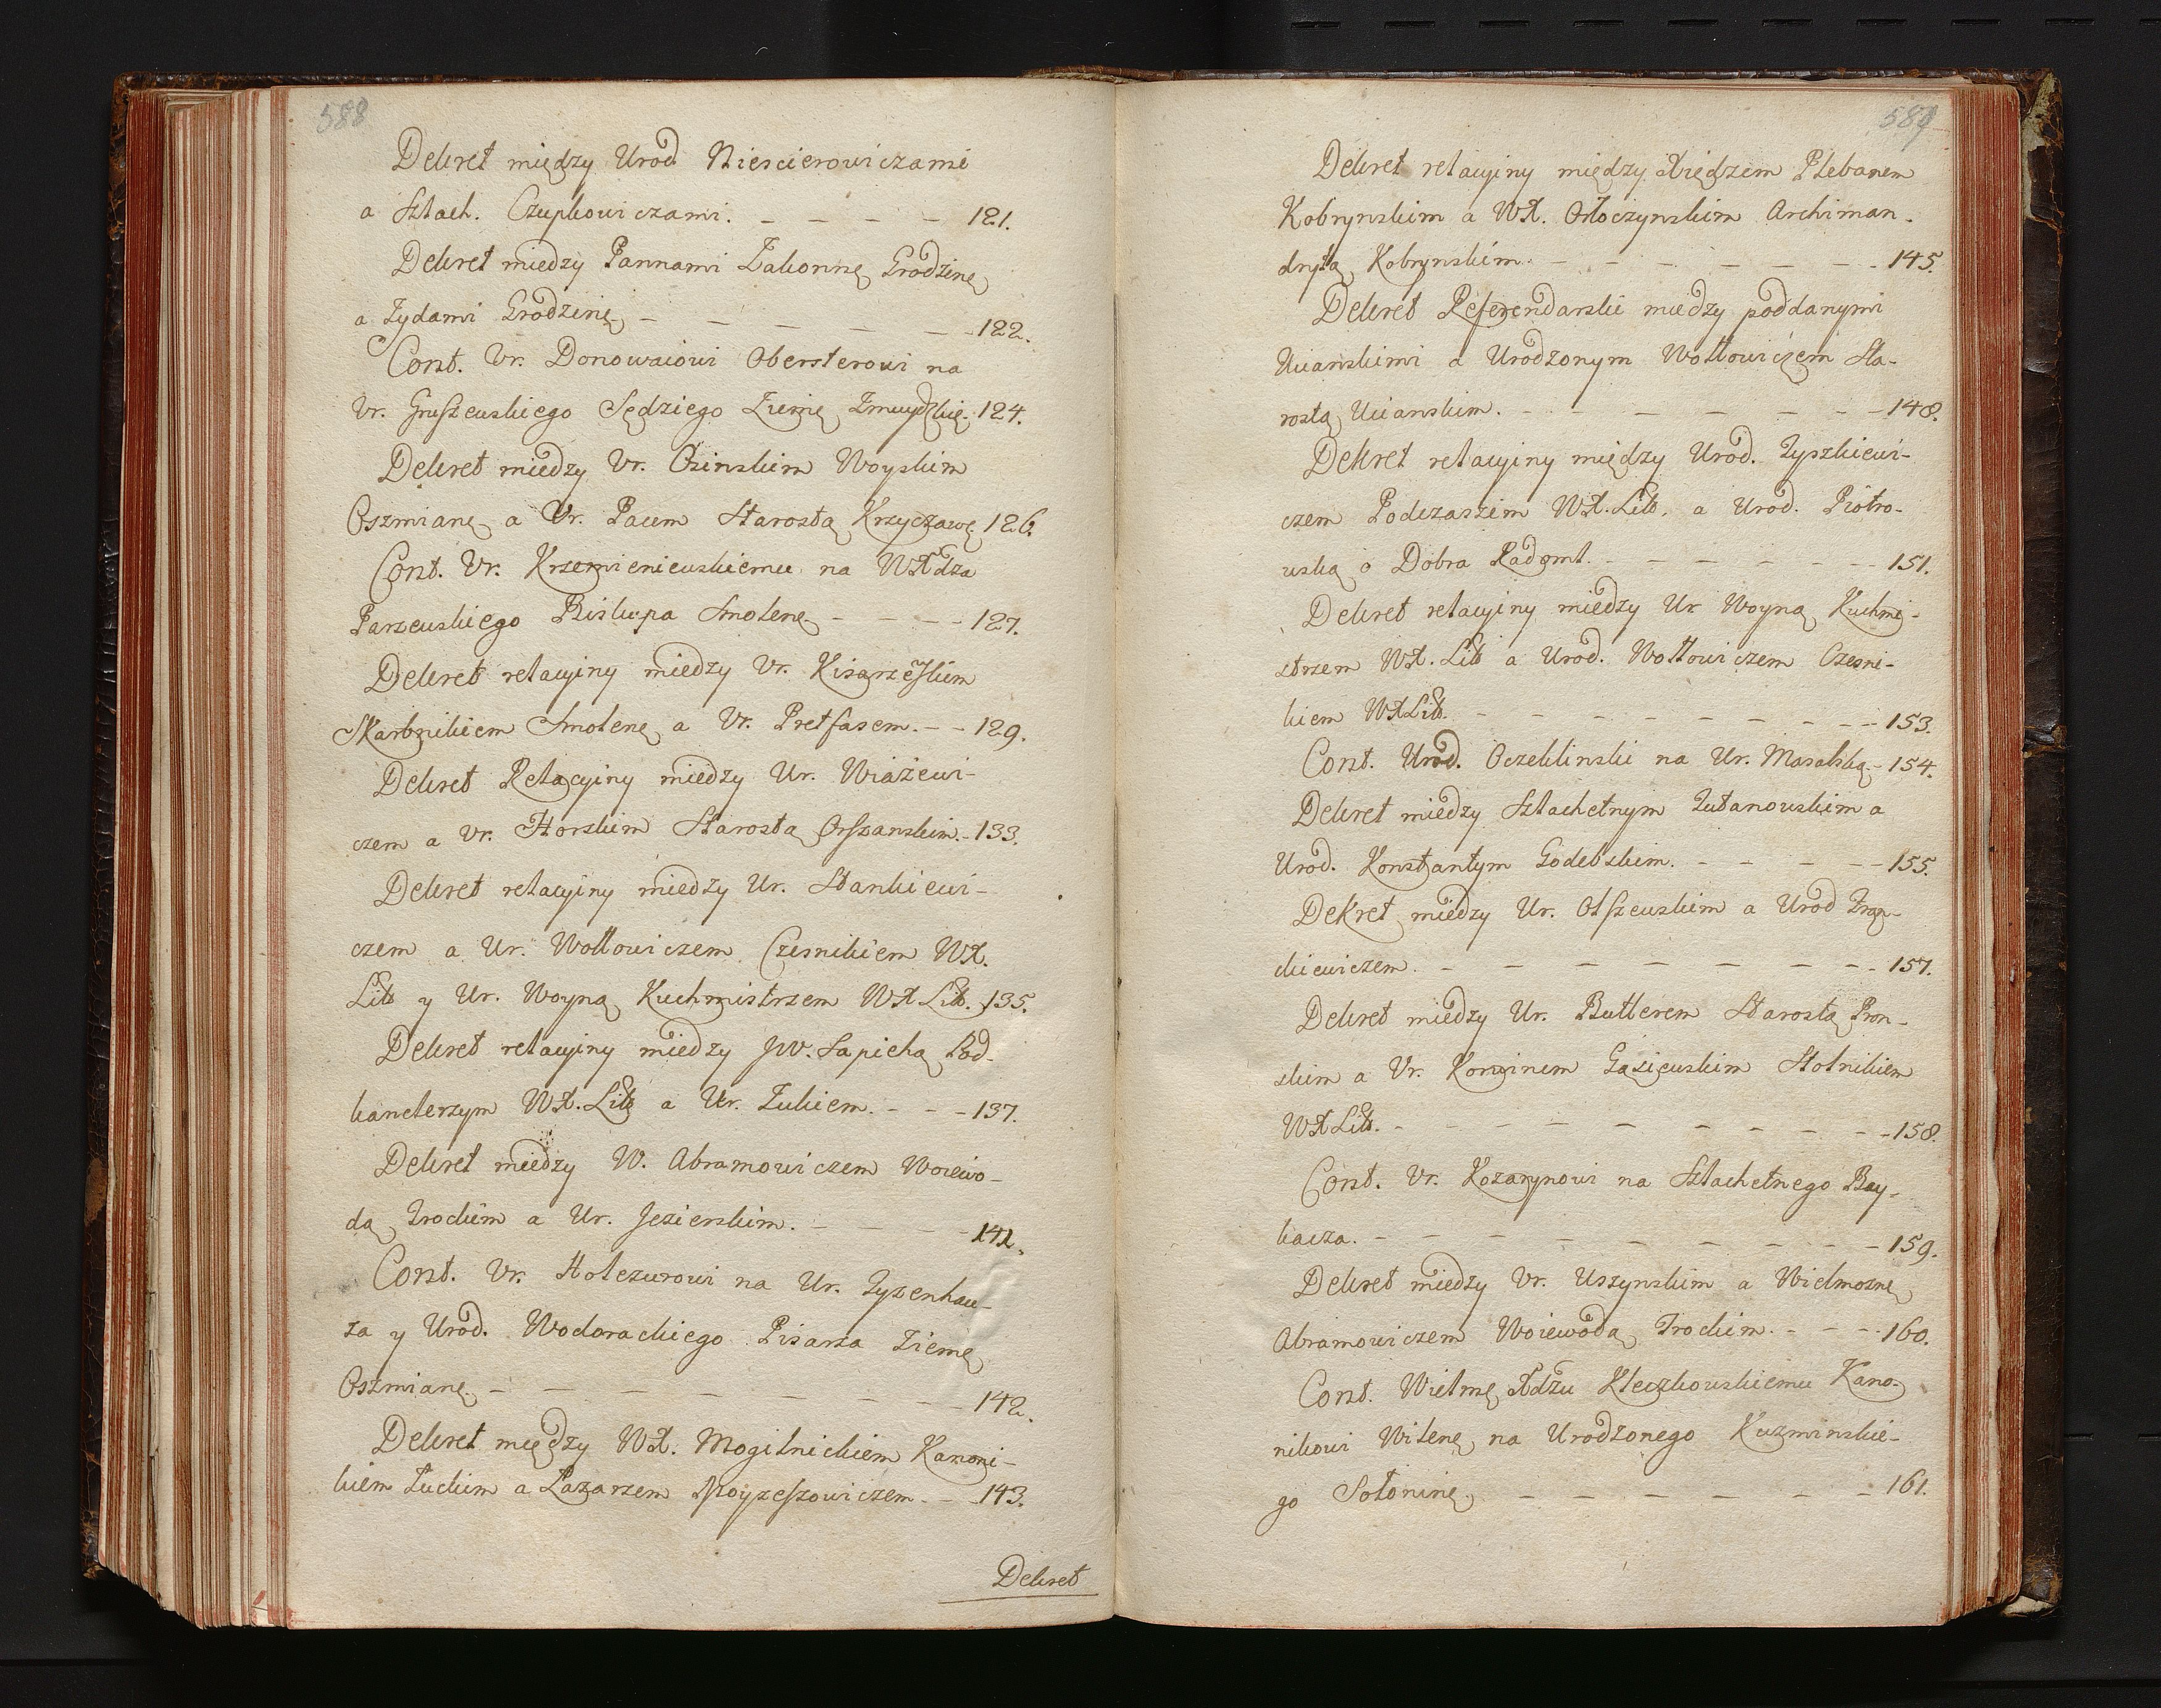 588
Dekret między Urod. Niescierowiczami
a Szlach. Czupkowiczami. - - - - 121.
Dekret miedzy Pannami Zakonnę Grodzinę
a Zydami Grodzinę - - - - - 122.
Cont. Vr. Donowaiowi Obersterowi na
Vr. Gruszewskiego Sędziego Ziemę Zmuydzkię. 124.
Dekret miedzy Vr. Osinskim Woyskim
Oszmianę a Vr. Pacem Starostą Krzyczawę 126.
Cont. Vr. Krzemieniewskiemu na WXdza
Parzewskiego Biskupa Smolenę - - - - 127.
Dekret retacyiny miedzy Vr.
Skarbnikiem Smolenę a Vr. Pretfasem. - - 129.
Dekret Retacyiny miedzy Ur. Wiażewi-
czem a Vr. Horskim Starostą Orszanskim. - 133.
Dekret retacyiny miedzy Ur. Stankiewi-
czem a Ur. Wołłowiczem Czesnikiem WX.
Litt y Ur. Woyną Kuchmistrzem WXLitt. 135.
Dekret retacyiny miedzy JW. Sapiehą Pod-
kanclerzym WX. Litt a Ur. Zukiem. - - - 137.
Dekret miedzy W. Abramowiczem Woiewo-
dą Trockim a Ur. Jezierskim. - - - - 141.
Cont. Vr. Hołezurowi na Ur. Tyzenhau-
za y Urod. Wodorackiego Pisarza Ziemę
Oszmianę. - - - - - - - 142.
Dekret między WX. Mogilnickiem Kanoni-
kiem Łuckim a Łazarzem Moyzeszowiczem. - - 143.
Dekret
589
Dekret retacyiny między Xiędzem Plebanem
Kobrynskim a WX. Orłoczynskim Archiman-
drytą Kobrynskim. - - - - - - - 145.
Dekret Referendarski miedzy poddanymi
Uciańskimi a Urodzonym Wołłowiczem Sta-
rostą Uciańskim. - - - - - - - 148.
Dekret retacyiny między Urod. Tyszkiewi-
czem Podczaszim WX. Litt. a Urod. Piotro-
wską o Dobra Radomł. - - - - - - - 151.
Dekret retacyiny miedzy Ur Woyną Kuchmi-
strzem WX. Litt a Urod. Wołłowiczem Czesni-
kiem WXLitt. - - - - - - - - - 153.
Cont. Urod. Oczeklinski na Ur. Masalską - 154.
Dekret miedzy Szlachetnym Lutanowskim a
Urod. Konstantym Godebskim. - - - - - 155.
Dekret miedzy Ur. Olszewskim a Urod
ckiewiczem. - - - - - - - - 157.
Dekret miedzy Ur. Butlerem Starostą Pron-
skim a Vr. Korwinem Gąsiewskim Stolnikiem
WXLitt. - - - - - - - - - 158.
Cont. Vr. Kozarynowi na Szlachetnego Bay-
kacza. - - - - - - - - - 159.
Dekret miedzy Vr. Uszynskim a Wielmoznę
Abramowiczem Woiewodą Trockim. - - - 160.
Cont. Wielmę Xdzu Kleczkowskiemu Kano-
nikowi Wilenę na Urodzonego Kuzminskie-
go Sołoninę, - - - - - - - 161.